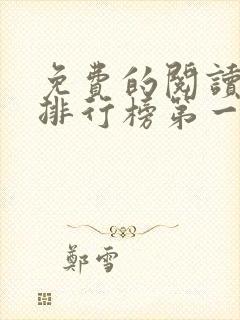 免費的閱讀
排行榜第一
鄭雪